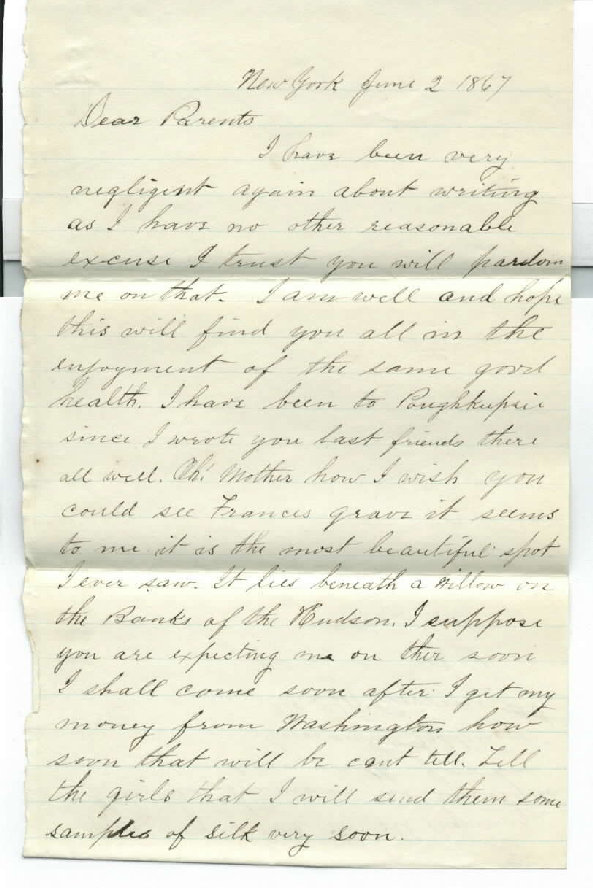 New York June 2 1867
Dear Parents
I have been very
negligent again about writing
as I have no other reasonable
excuse I trust you will pardon
me on that. I am well and hope
this will find you all in the
enjoyment of the same good
health. I have been to Poughkepsie
since I wrote you last friends there
all well. Oh! Mother how I wish you
could see Francis grave it seems
to me it is the most beautiful spot
I ever saw. It lies beneath a Willow on
the Banks of the Hudson. I suppose
you are expecting me on ther soon
I shall come soon after I get my
money from Washington how
soon that will be cant tell. Tell
the girls that I will send them some
samples of silk very soon.